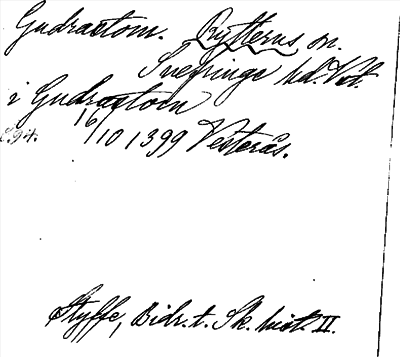 Gudraetom. Rytterns sn.
Snefringe hd. Vstm.
i Gudraetom
16/10 1399 Vesterås.
Styffe, Bidr. t. Sk. hist. II.